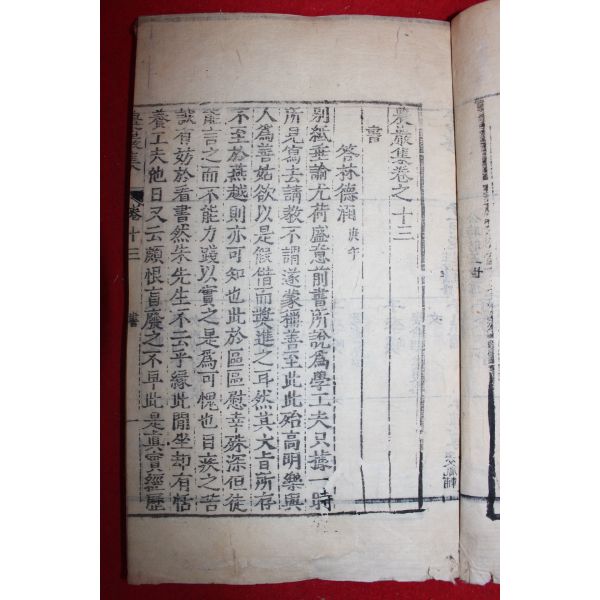 農巖集卷之十三
書
答林德涵 庚午
別紙垂諭尤荷盛意前書所說爲學工夫只據一時
所見寫去請敎不謂遂蒙稱善至此此殆高明樂與
人爲善姑欲以是假借而奬進之耳然其大旨所存
不至於燕越則亦可知也此於區區慰幸殊深但徒
能言之而不能力踐以實之是爲可愧也目疾之苦
誠有妨於看書然朱先生不云乎緣此閒坐却有恬
養工夫他日又云頗恨盲廢之不早此是眞實經歷
農巖集 卷十三 書